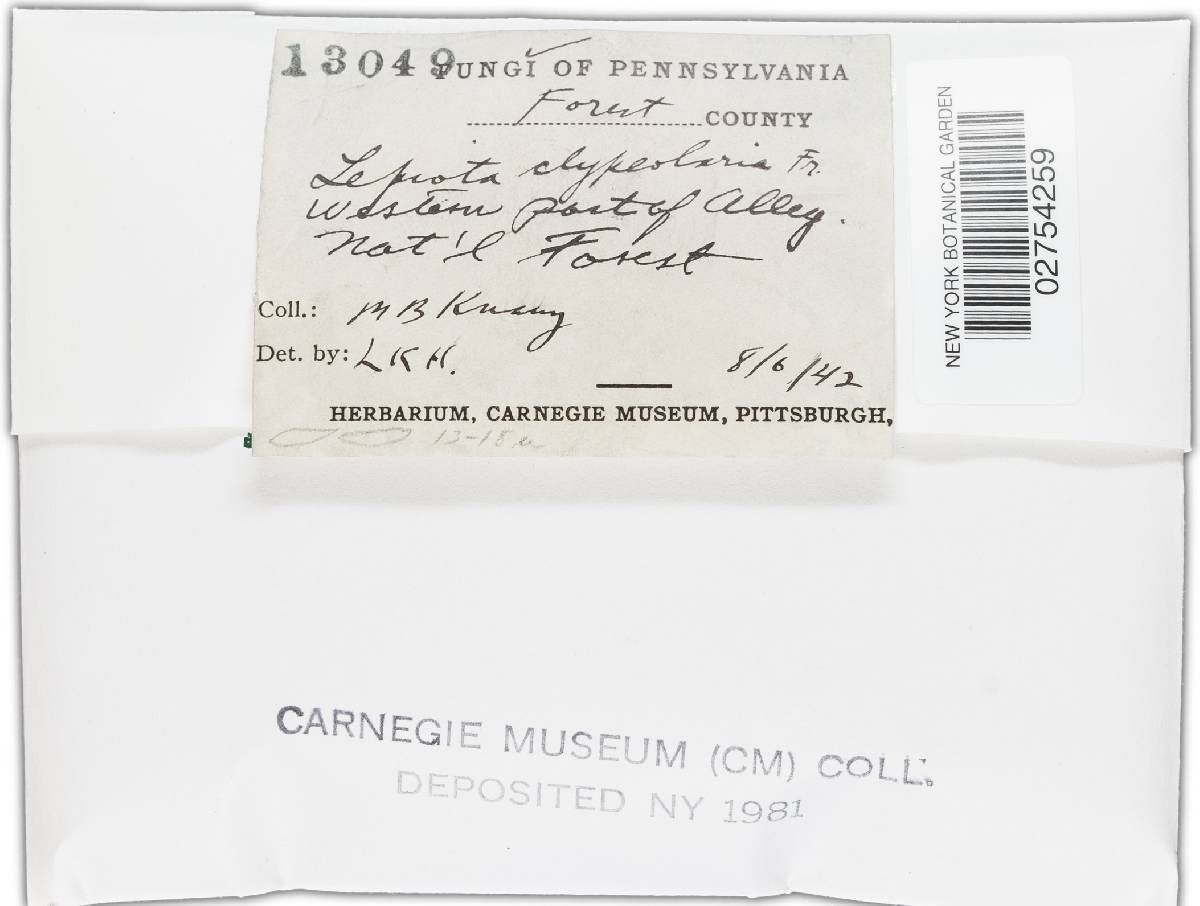 13049 FUNGI OF PENNSYLVANIA
Forest COUNTY
Lepiota clypeolaria Fr.
Western part of Alleg.
Nat'l Forest
Coll.: M B Knauz
Det. by: L K H. 8/6/42
HERBARIUM, CARNEGIE MUSEUM, PITTSBURGH,
13-18 u
NEW YORK BOTANICAL GARDEN
02754259
CARNEGIE MUSEUM (CM) COLL.
DEPOSITED NY 1981